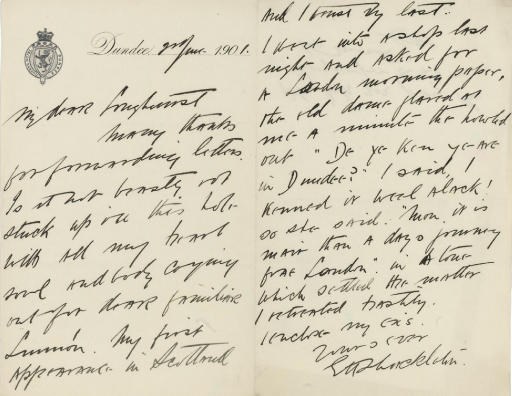 Dundee, 2nd June 1901.
My dear Longhurst
Many thanks
for forwarding letters.
Is it not beastly rot
stuck up in this hole
with all my heart
soul and body crying
out for dear familiar
Lunnon. My first
appearance in Scotland
And I trust my last.
I went into a shop last
night and asked for
a London morning paper,
the old dame glared at
me a minute the howled
out "De ye ken ye are
in Dundee?" I said, I
kenned it weel alack!
so she said. "Mon, it is
mair than a days journey
frae London" in a tone
which settled the matter
I retreated hastily.
I enclose my exs.
Yours ever
EHShackleton.